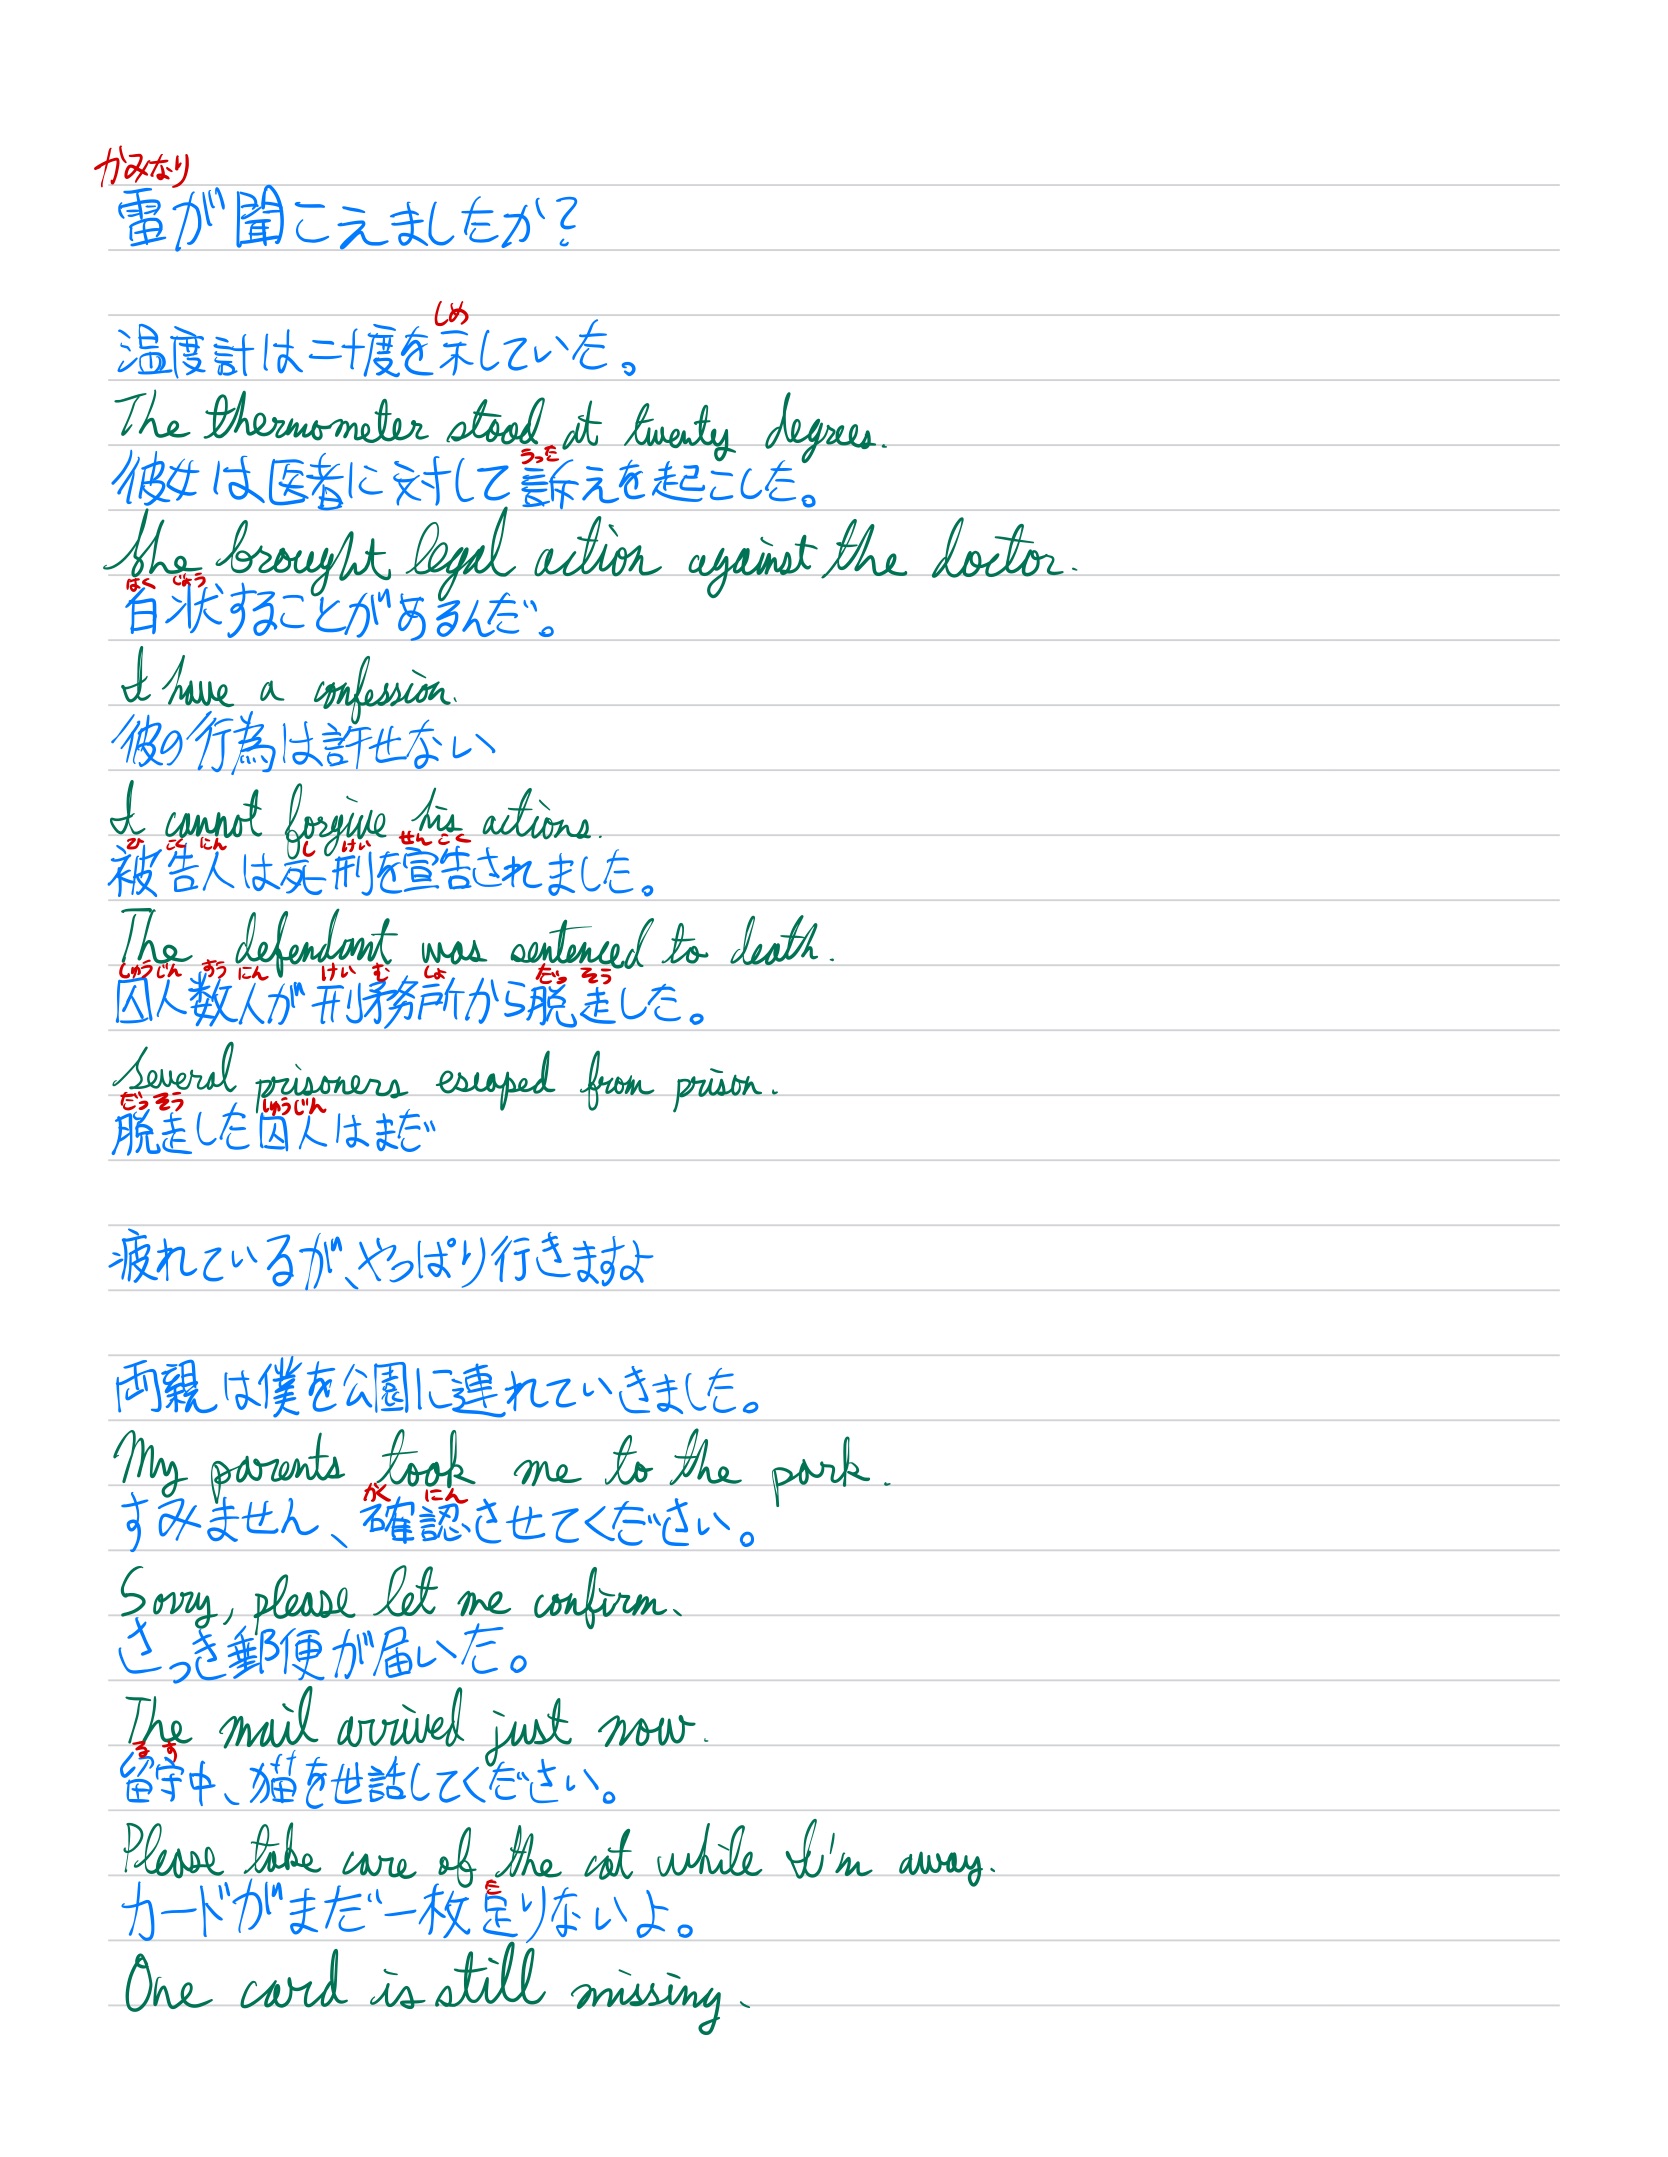 かみなり
雷が聞こえましたか？
しめ
温度計は二十度を示していた。
The thermometer stood at twenty degrees.
うった
彼女は医者に対して訴えを起こした。
She brought legal action against the doctor.
はく じょう
白状することがあるんだ。
I have a confession.
彼の行為は許せない
I cannot forgive his actions.
ひ こく にん し けい せん こく
被告人は死刑を宣告されました。
The defendant was sentenced to death.
しゅうじん すう にん けい む しょ だっ そう
囚人数人が刑務所から脱走した。
Several prisoners escaped from prison.
だっ そう しゅうじん
脱走した囚人はまだ
疲れているが、やっぱり行きますよ
両親は僕を公園に連れていきました。
My parents took me to the park.
かく にん
すみません、確認させてください。
Sorry, please let me confirm.
さっき郵便が届いた。
The mail arrived just now.
る す
留守中、猫を世話してください。
Please take care of the cat while I'm away.
た
カードがまだ一枚足りないよ。
One card is still missing.